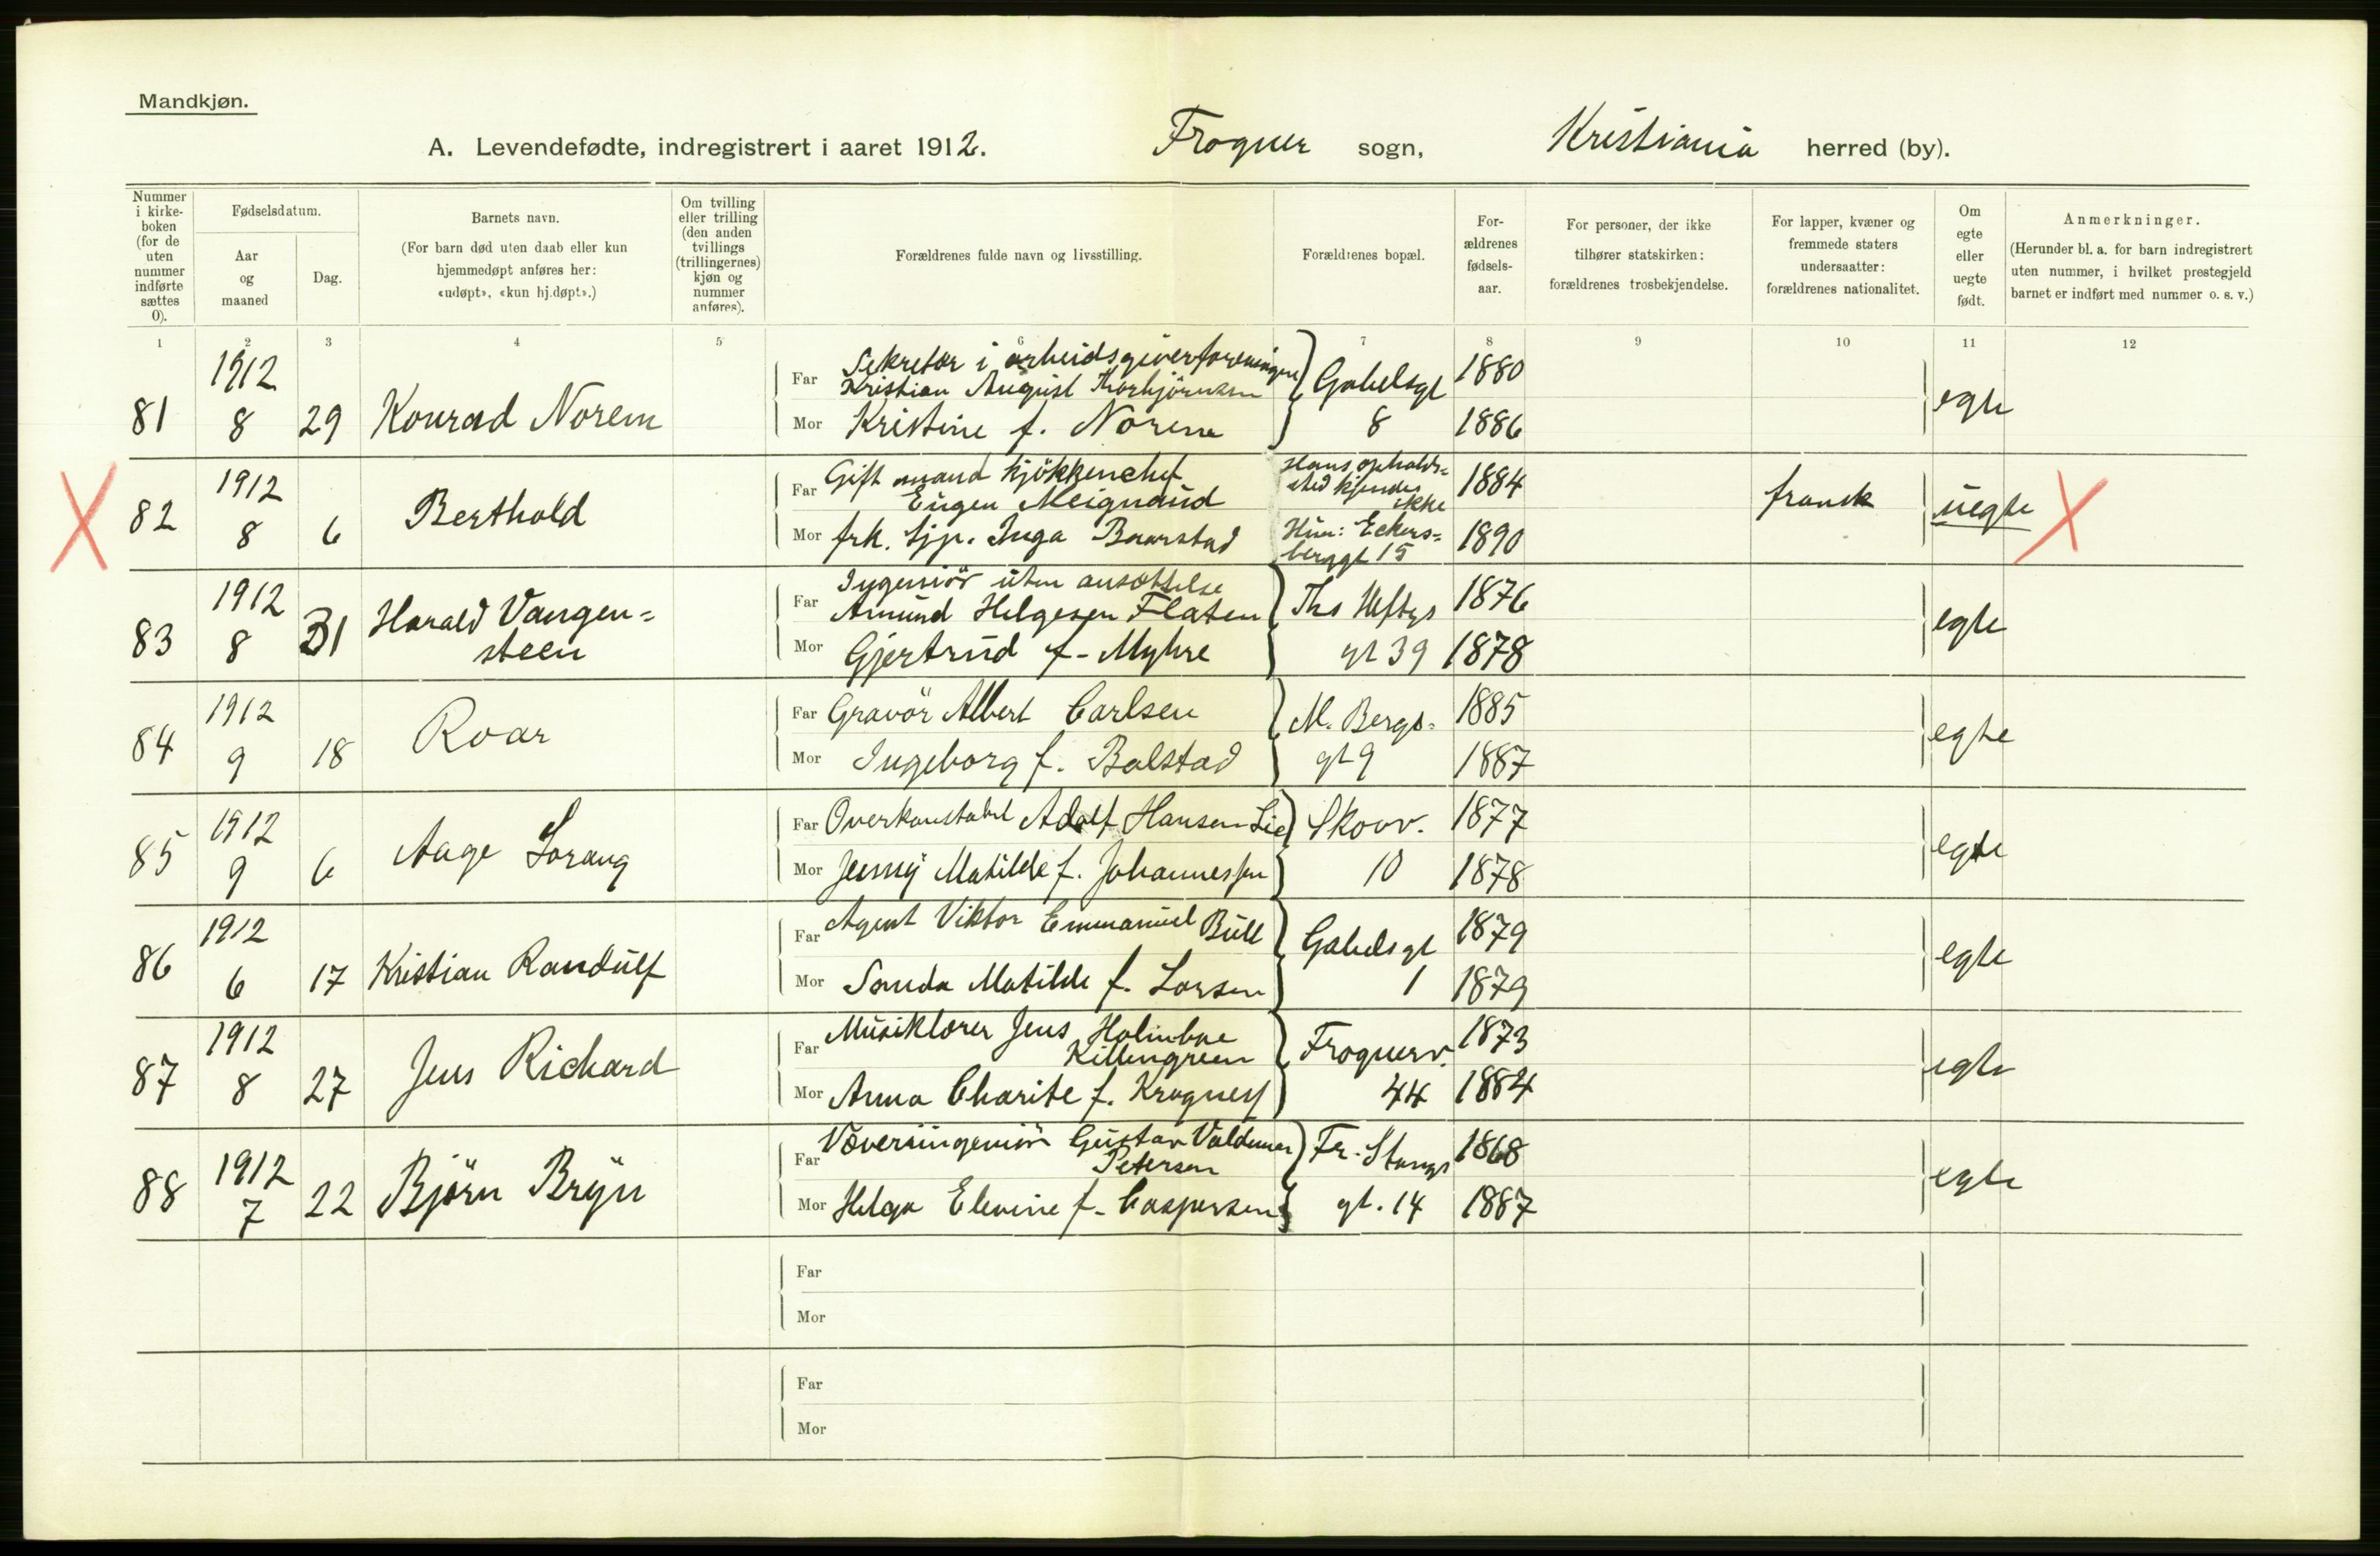 Mandkjøn.
A. Levendefødte, indregistrert i aaret 1912. Frogner sogn, Kristiania herred (by).
Nummer i kirke-boken (for de uten nummer indførte sættes 0).
Fødselsdatum.
Aar og maaned
Dag.
Barnets navn.
(For barn død uten daab eller kun hjemmedøpt anføres her: «udøpt», «kun hj.døpt».)
Om tvilling eller trilling (den anden tvillings (trillingernes) kjøn og nummer anføres).
Forældrenes fulde navn og livsstilling.
Forældrenes bopæl.
For-ældrenes fødsels-aar.
For personer, der ikke tilhører statskirken: forældrenes trosbekjendelse.
For lapper, kvæner og fremmede staters undersaatter: forældrenes nationalitet.
Om egte eller uegte født.
Anmerkninger.
(Herunder bl. a. for barn indregistrert uten nummer, i hvilket prestegjeld barnet er indført med nummer o. s. v.)
1 2 3 4 5 6 7 8 9 10 11 12
81 1912 8 29 Konrad Norem
Far Sekretær i arbeidsgiverforeningen Kristian August Thorbjörnsen Gabelsgt 1880 egte
Mor Kristine f. Norem 8 1886
82 1912 8 6 Berthold
Far Gift mand kjökkenchef Eugen Meignaud Hans opholds= sted kjendes ikke 1884 fransk uegte
Mor frk. tjp. Inga Baarstad Hun: Eckers= berggt 15 1890
83 1912 8 31 Harald Vangen= steen
Far Ingeniör uten ansættelse Amund Helgesen Flaten Ths Heftys 1876 egte
Mor Gjertrud f. Myhre gt 39 1878
84 1912 9 18 Roar
Far Gravör Albert Carlsen M. Bergs= 1885 egte
Mor Ingeborg f. Balstad gt 9 1887
85 1912 9 6 Aage Lorang
Far Overkonstabel Adolf Hansen Lie Skovv. 1877 egte
Mor Jenny Matilde f. Johannessen 10 1878
86 1912 6 17 Kristian Randulf
Far Agent Viktor Emmanuel Bull Gabelsgt 1879 egte
Mor Matilde f. Larsen 1 1879
87 1912 8 27 Jens Richard
Far Musiklærer Jens Holmboe Killengreen Frognerv. 1873 egte
Mor Anna Charite f. Krogness 44 1884
88 1912 7 22 Björn Bryn
Far Væveriingeniör Gustav Valdemar Petersen Fr. Stangs 1868 egte
Mor Helga Elevine f. Caspersen gt. 14 1887
Far
Mor
Far
Mor